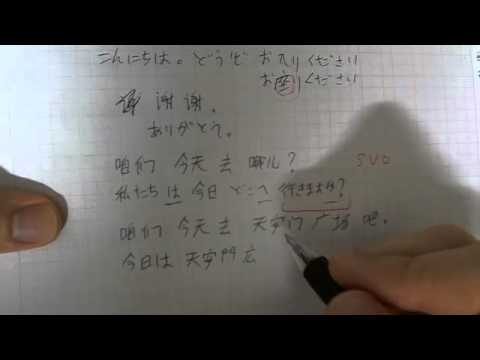 こんにちは。どうぞ お入りください
お座りください
谢谢。
ありがとう。
咱们 今天 去 哪儿? SVO
私たちは 今日 どこへ 行きますか?
咱们 今天 去 天安门 广场 吧。
今日は 天安門広